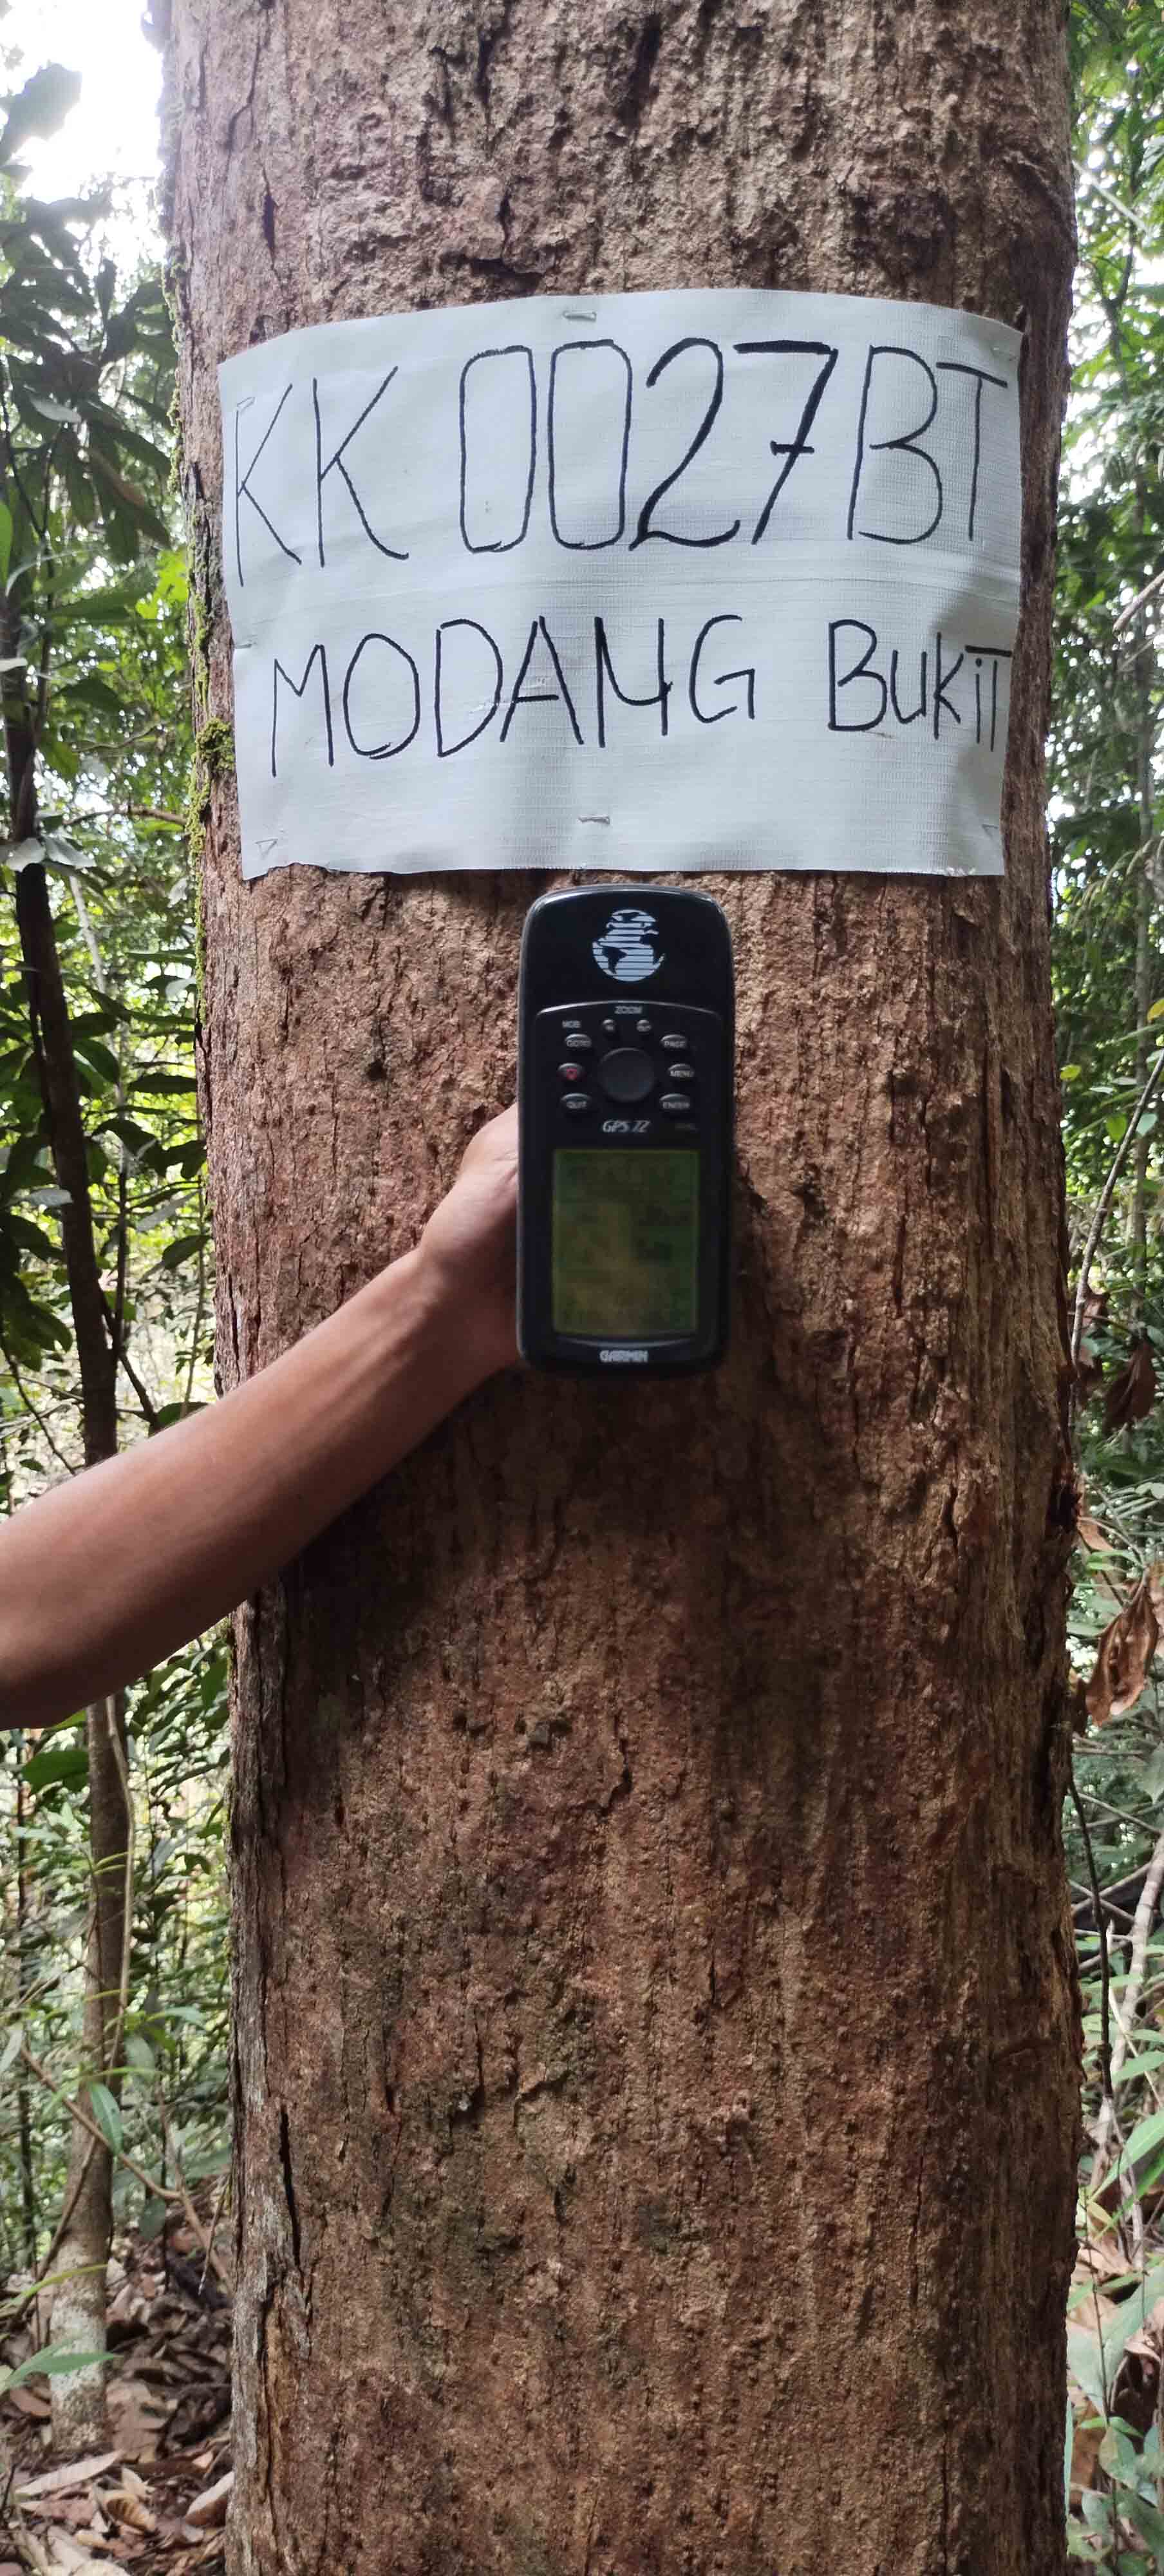 KK 0027BT
MODANG BUKiT
ZOOM
MOB
GOTO PAGE
MENU
QUIT ENTER
GPS 72
GARMIN